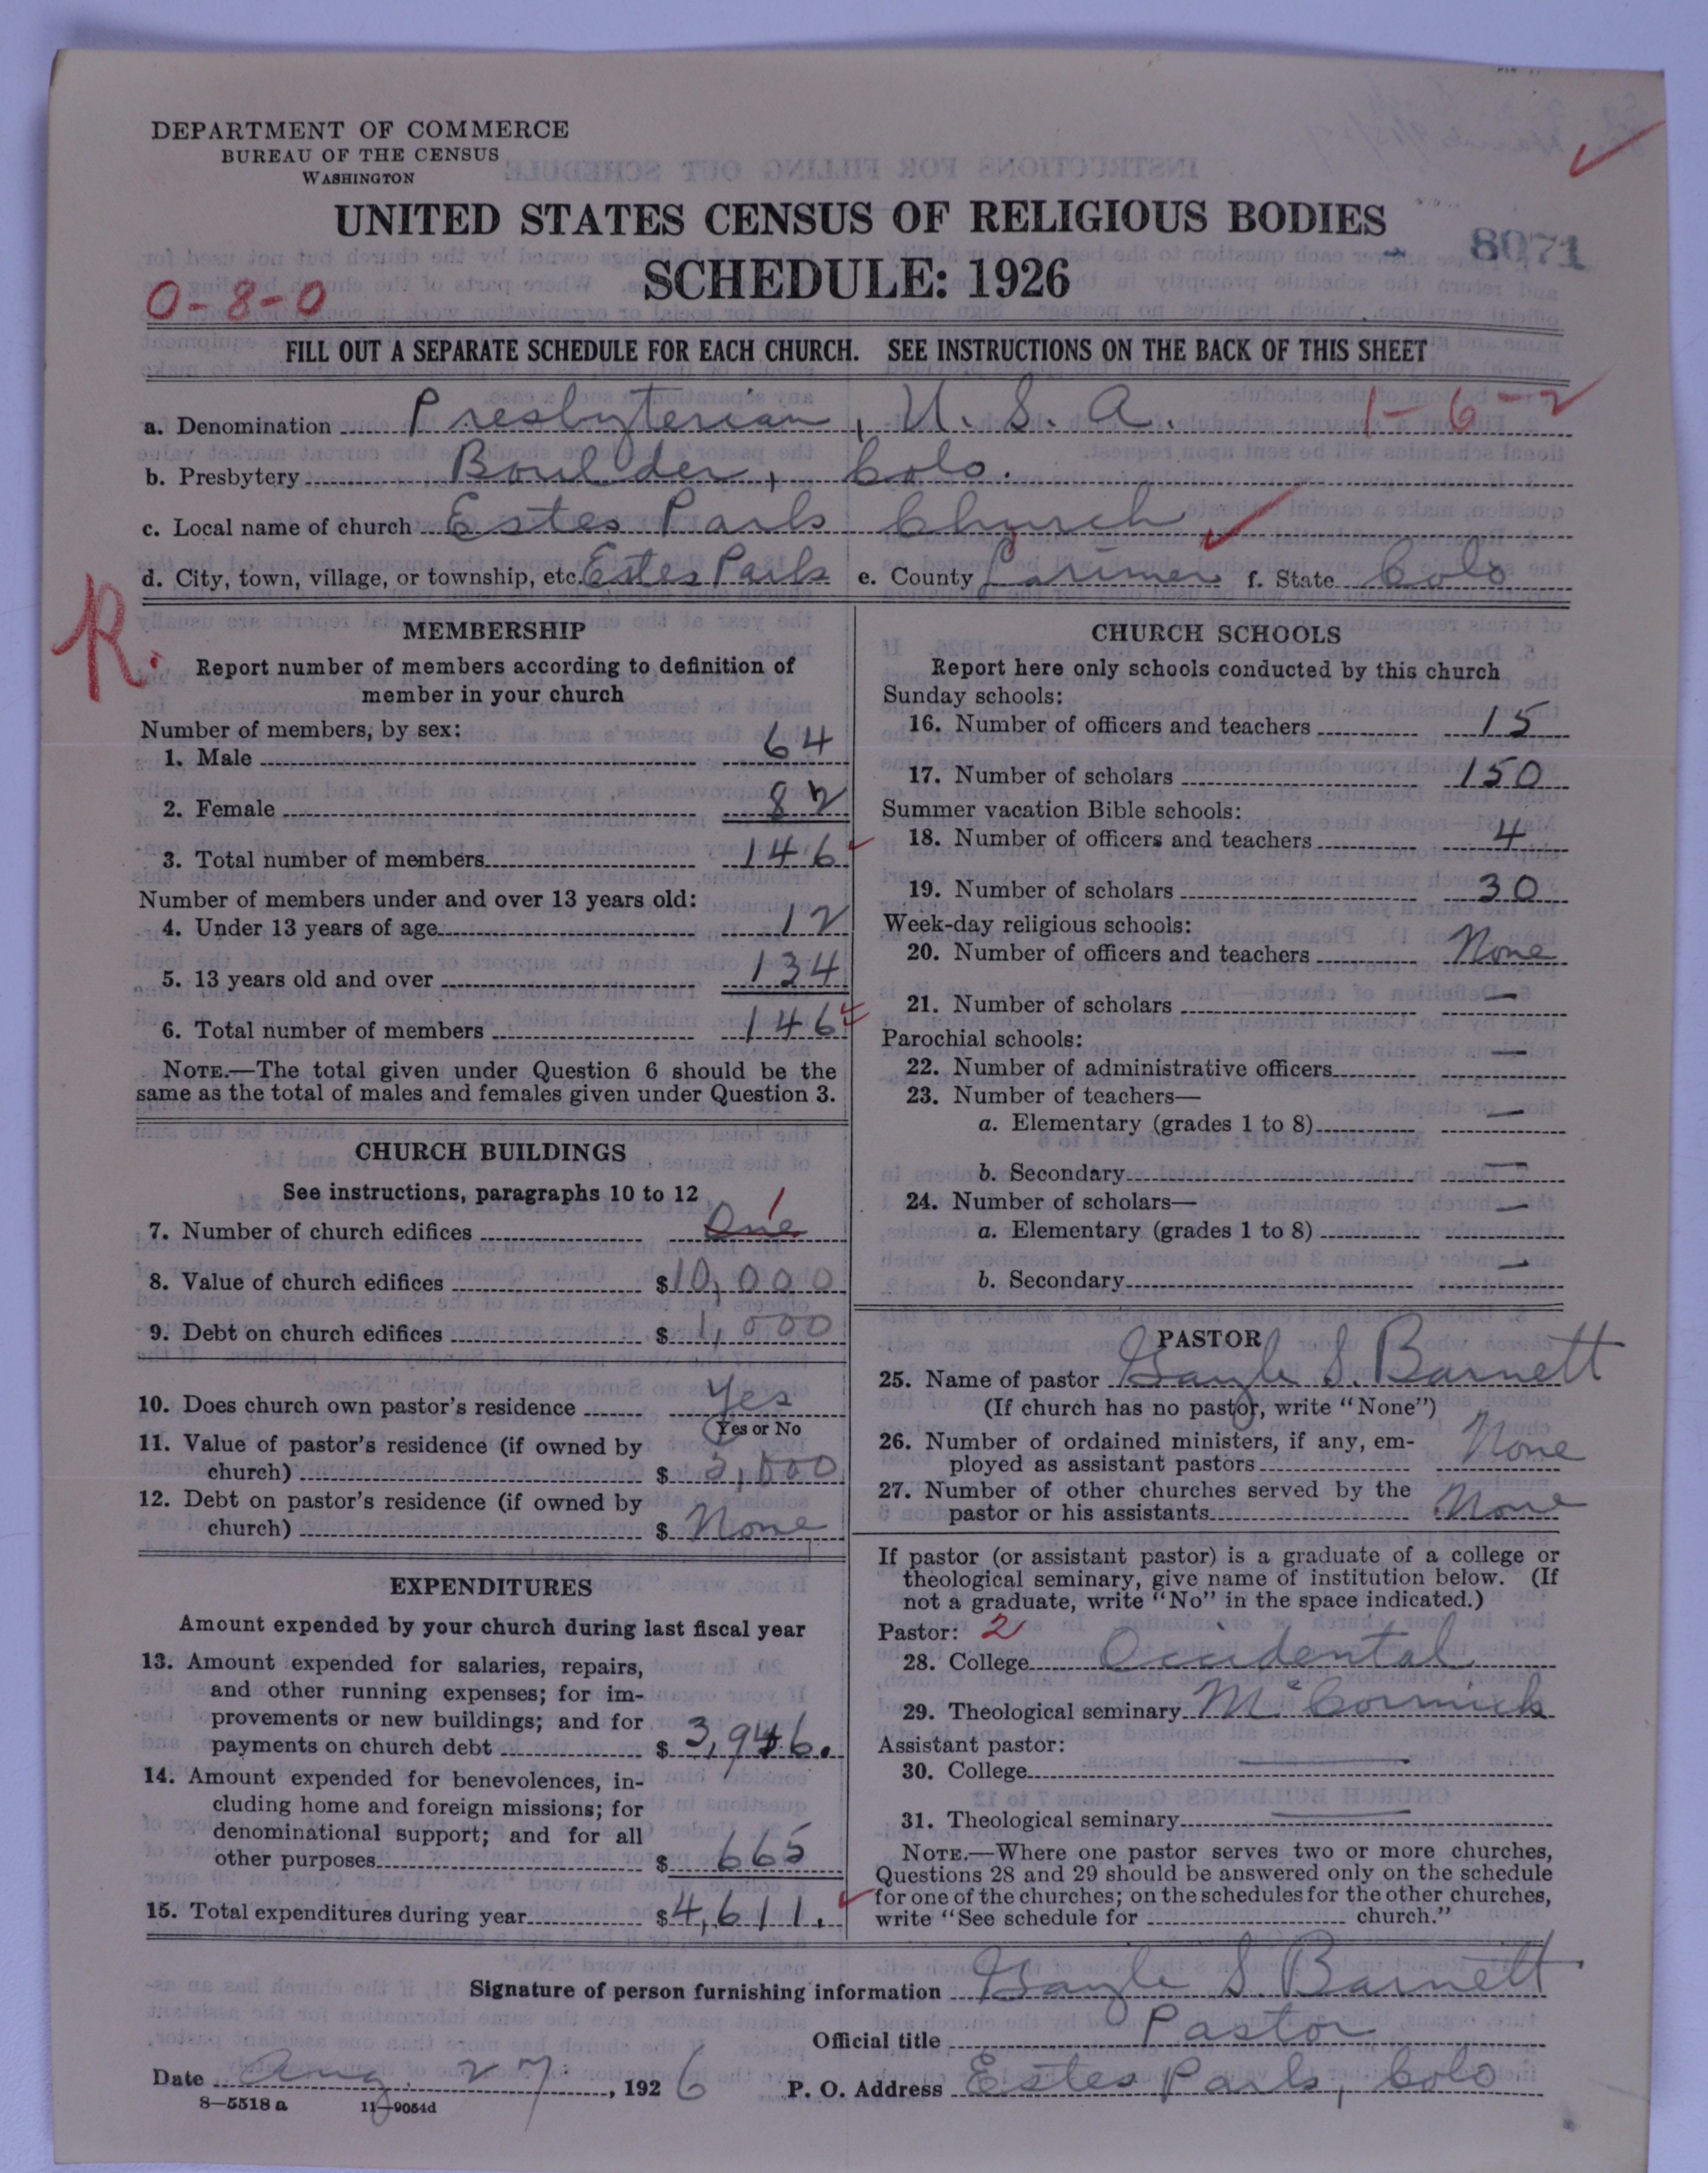 DEPARTMENT OF COMMERCE
BUREAU OF THE CENSUS
WASHINGTON
UNITED STATES CENSUS OF RELIGIOUS BODIES
8071
SCHEDULE: 1926
0-8-0
FILL OUT A SEPARATE SCHEDULE FOR EACH CHURCH. SEE INSTRUCTIONS ON THE BACK OF THIS SHEET
a. Denomination Presbyterian, U. S. A. 1-6-2
b. Presbytery Boulder, Colo.
c. Local name of church Estes Park Church
d. City, town, village, or township, etc. Estes Park e. County Larimer f. State Colo
R.
MEMBERSHIP
Report number of members according to definition of
member in your church
Number of members, by sex:
1. Male 64
2. Female 82
3. Total number of members 146
Number of members under and over 13 years old:
4. Under 13 years of age 12
5. 13 years old and over 134
6. Total number of members 146
NOTE.—The total given under Question 6 should be the
same as the total of males and females given under Question 3.
CHURCH BUILDINGS
See instructions, paragraphs 10 to 12
7. Number of church edifices One 1
8. Value of church edifices $10,000
9. Debt on church edifices $1,000
10. Does church own pastor's residence Yes
Yes or No
11. Value of pastor's residence (if owned by
church) $ 3,000
12. Debt on pastor's residence (if owned by
church) $ None
EXPENDITURES
Amount expended by your church during last fiscal year
13. Amount expended for salaries, repairs,
and other running expenses; for im-
provements or new buildings; and for
payments on church debt $ 3,946.
14. Amount expended for benevolences, in-
cluding home and foreign missions; for
denominational support; and for all
other purposes $ 665
15. Total expenditures during year $4,611.
CHURCH SCHOOLS
Report here only schools conducted by this church
Sunday schools:
16. Number of officers and teachers 15
17. Number of scholars 150
Summer vacation Bible schools:
18. Number of officers and teachers 4
19. Number of scholars 30
Week-day religious schools:
20. Number of officers and teachers None
21. Number of scholars —
Parochial schools:
22. Number of administrative officers —
23. Number of teachers—
a. Elementary (grades 1 to 8) —
b. Secondary —
24. Number of scholars—
a. Elementary (grades 1 to 8) —
b. Secondary —
PASTOR
25. Name of pastor Gayle S. Barnett
(If church has no pastor, write "None")
26. Number of ordained ministers, if any, em-
ployed as assistant pastors None
27. Number of other churches served by the
pastor or his assistants None
If pastor (or assistant pastor) is a graduate of a college or
theological seminary, give name of institution below. (If
not a graduate, write "No" in the space indicated.)
Pastor: 2
28. College Occidental
29. Theological seminary McCormick
Assistant pastor:
30. College —
31. Theological seminary —
NOTE.—Where one pastor serves two or more churches,
Questions 28 and 29 should be answered only on the schedule
for one of the churches; on the schedules for the other churches,
write "See schedule for church."
Signature of person furnishing information Gayle S. Barnett
Official title Pastor
Date Aug. 27, 1926 P. O. Address Estes Park, Colo
8—5518a 11—9054d